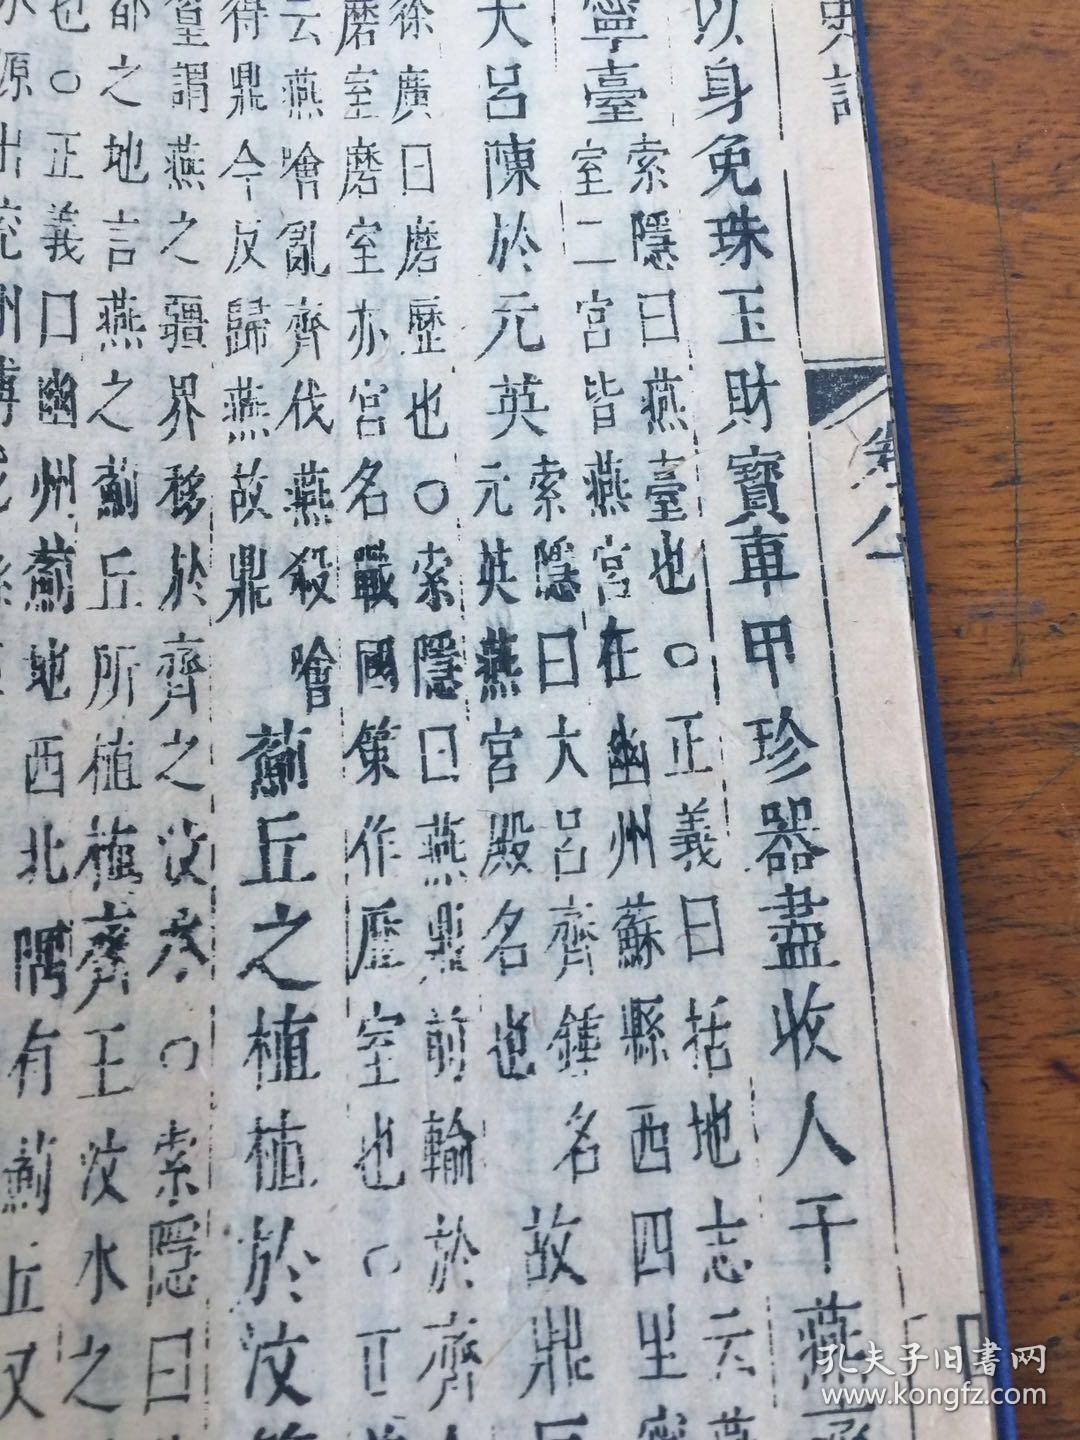 史記
卷八
以身免珠玉財寶車甲珍器盡收入于燕
寧臺
索隱曰燕臺也○正義曰括地志云燕
室二宮皆燕宮在幽州蘇縣西四里寧
大呂陳於元英
索隱曰大呂齊鍾名
元英燕宮殿名也
故鼎反
徐廣曰磨歷也○索隱曰燕鼎前輸於齊
磨室磨室亦宮名戰國策作歷室也○正
云燕噲亂齊伐燕殺噲
得鼎今反歸燕故鼎
薊丘之植植於汶篁
篁謂燕之疆界移於齊之汶水○索隱曰
都之地言燕之薊丘所植植齊王汶水之
也○正義曰幽州薊地西北隅有薊丘又
水源出兖州博
孔夫子旧書网
www.kongfz.com